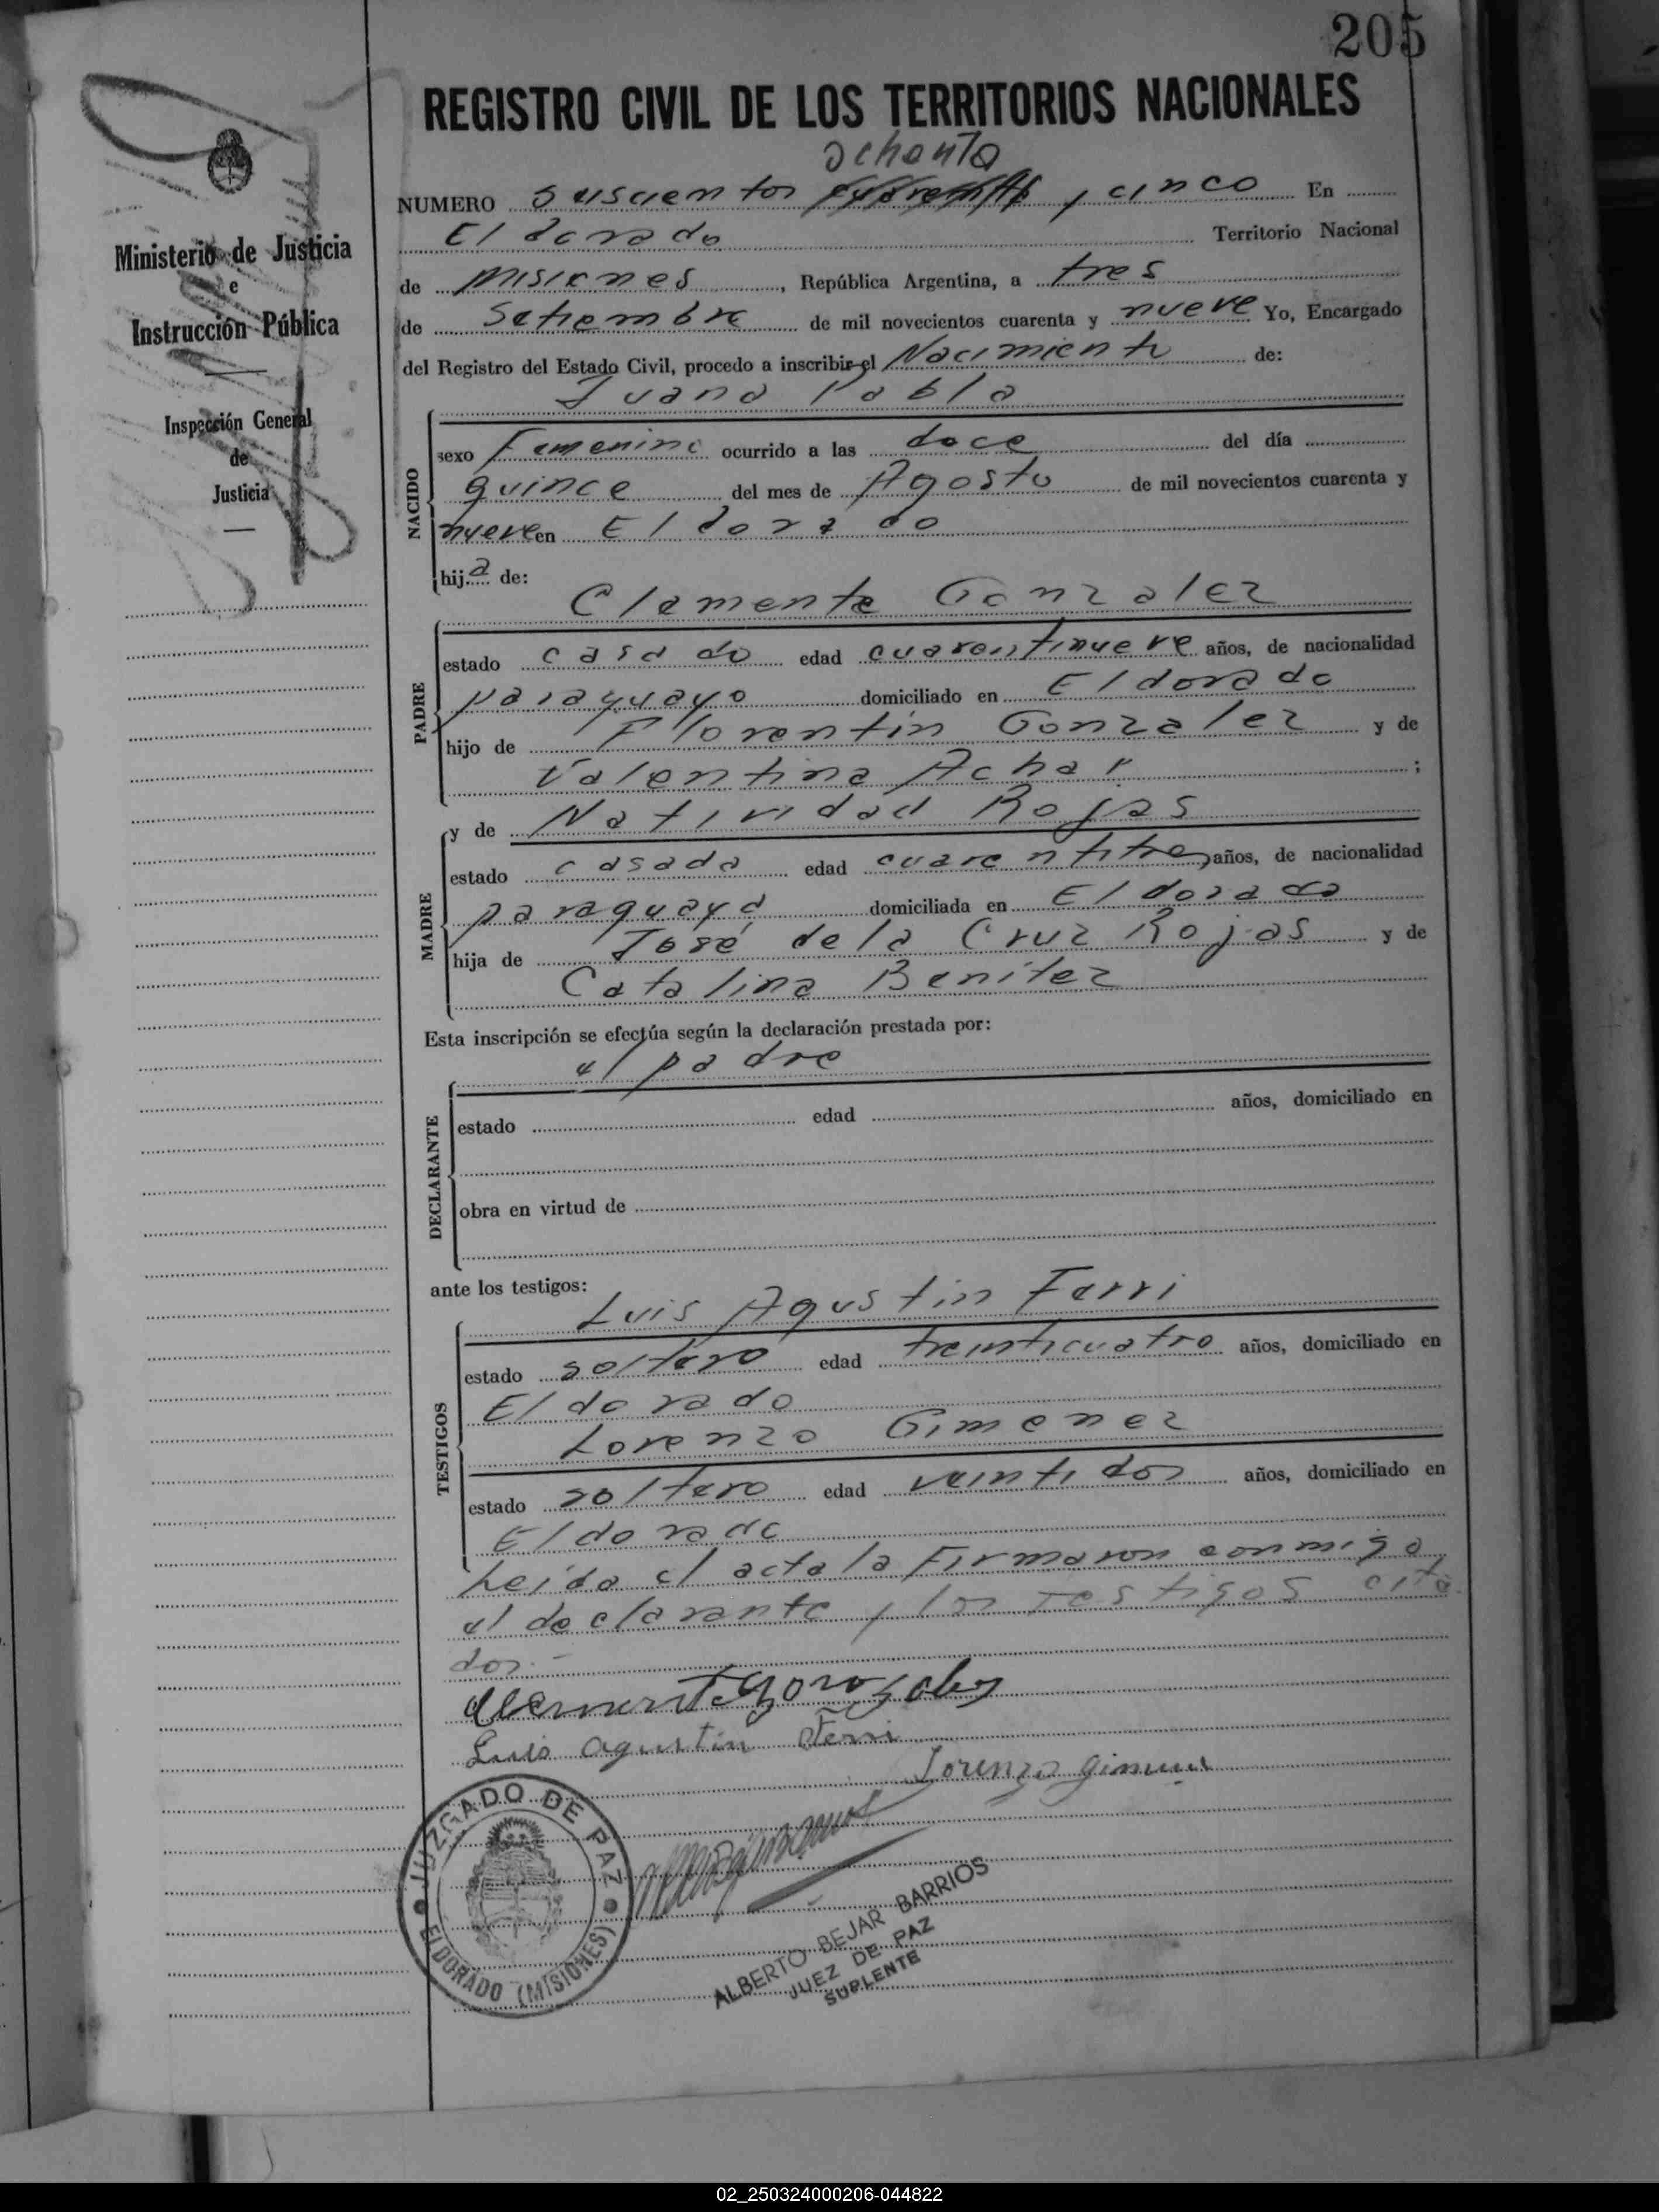 205
REGISTRO CIVIL DE LOS TERRITORIOS NACIONALES
ochenta
NUMERO suscientos y cinco En
Eldorado Territorio Nacional
de Misiones, República Argentina, a tres
de Setiembre de mil novecientos cuarenta y nueve Yo, Encargado
del Registro del Estado Civil, procedo a inscribir el Nacimiento de:
Juana Pabla
NACIDO
sexo Femenino ocurrido a las doce del día
quince del mes de Agosto de mil novecientos cuarenta y
nueve en Eldorado
hij.a de:
Clemente Gonzalez
PADRE
estado casado edad cuarentinueve años, de nacionalidad
paraguayo domiciliado en Eldorado
hijo de Florentin Gonzalez y de
Valentina Achar ;
MADRE
y de Natividad Rojas
estado casada edad cuarentitres años, de nacionalidad
paraguaya domiciliada en Eldorado
hija de José de la Cruz Rojas y de
Catalina Benítez
Esta inscripción se efectúa según la declaración prestada por:
el padre
DECLARANTE
estado edad años, domiciliado en
obra en virtud de
ante los testigos:
Luis Agustin Ferri
TESTIGOS
estado soltero edad treinticuatro años, domiciliado en
Eldorado
Lorenzo Gimenez
estado soltero edad veintidos años, domiciliado en
Eldorado
Leída el acta la Firmaron conmigo,
el declarante y los testigos cita
dos.-
Clemente Gonzalez
Luis Agustin Ferri
Lorenzo Gimenez
JUZGADO DE PAZ
ELDORADO (MISIONES)
ALBERTO BEJAR BARRIOS
JUEZ DE PAZ
SUPLENTE
Ministerio de Justicia
e
Instrucción Pública
Inspección General
de
Justicia
02_250324000206-044822